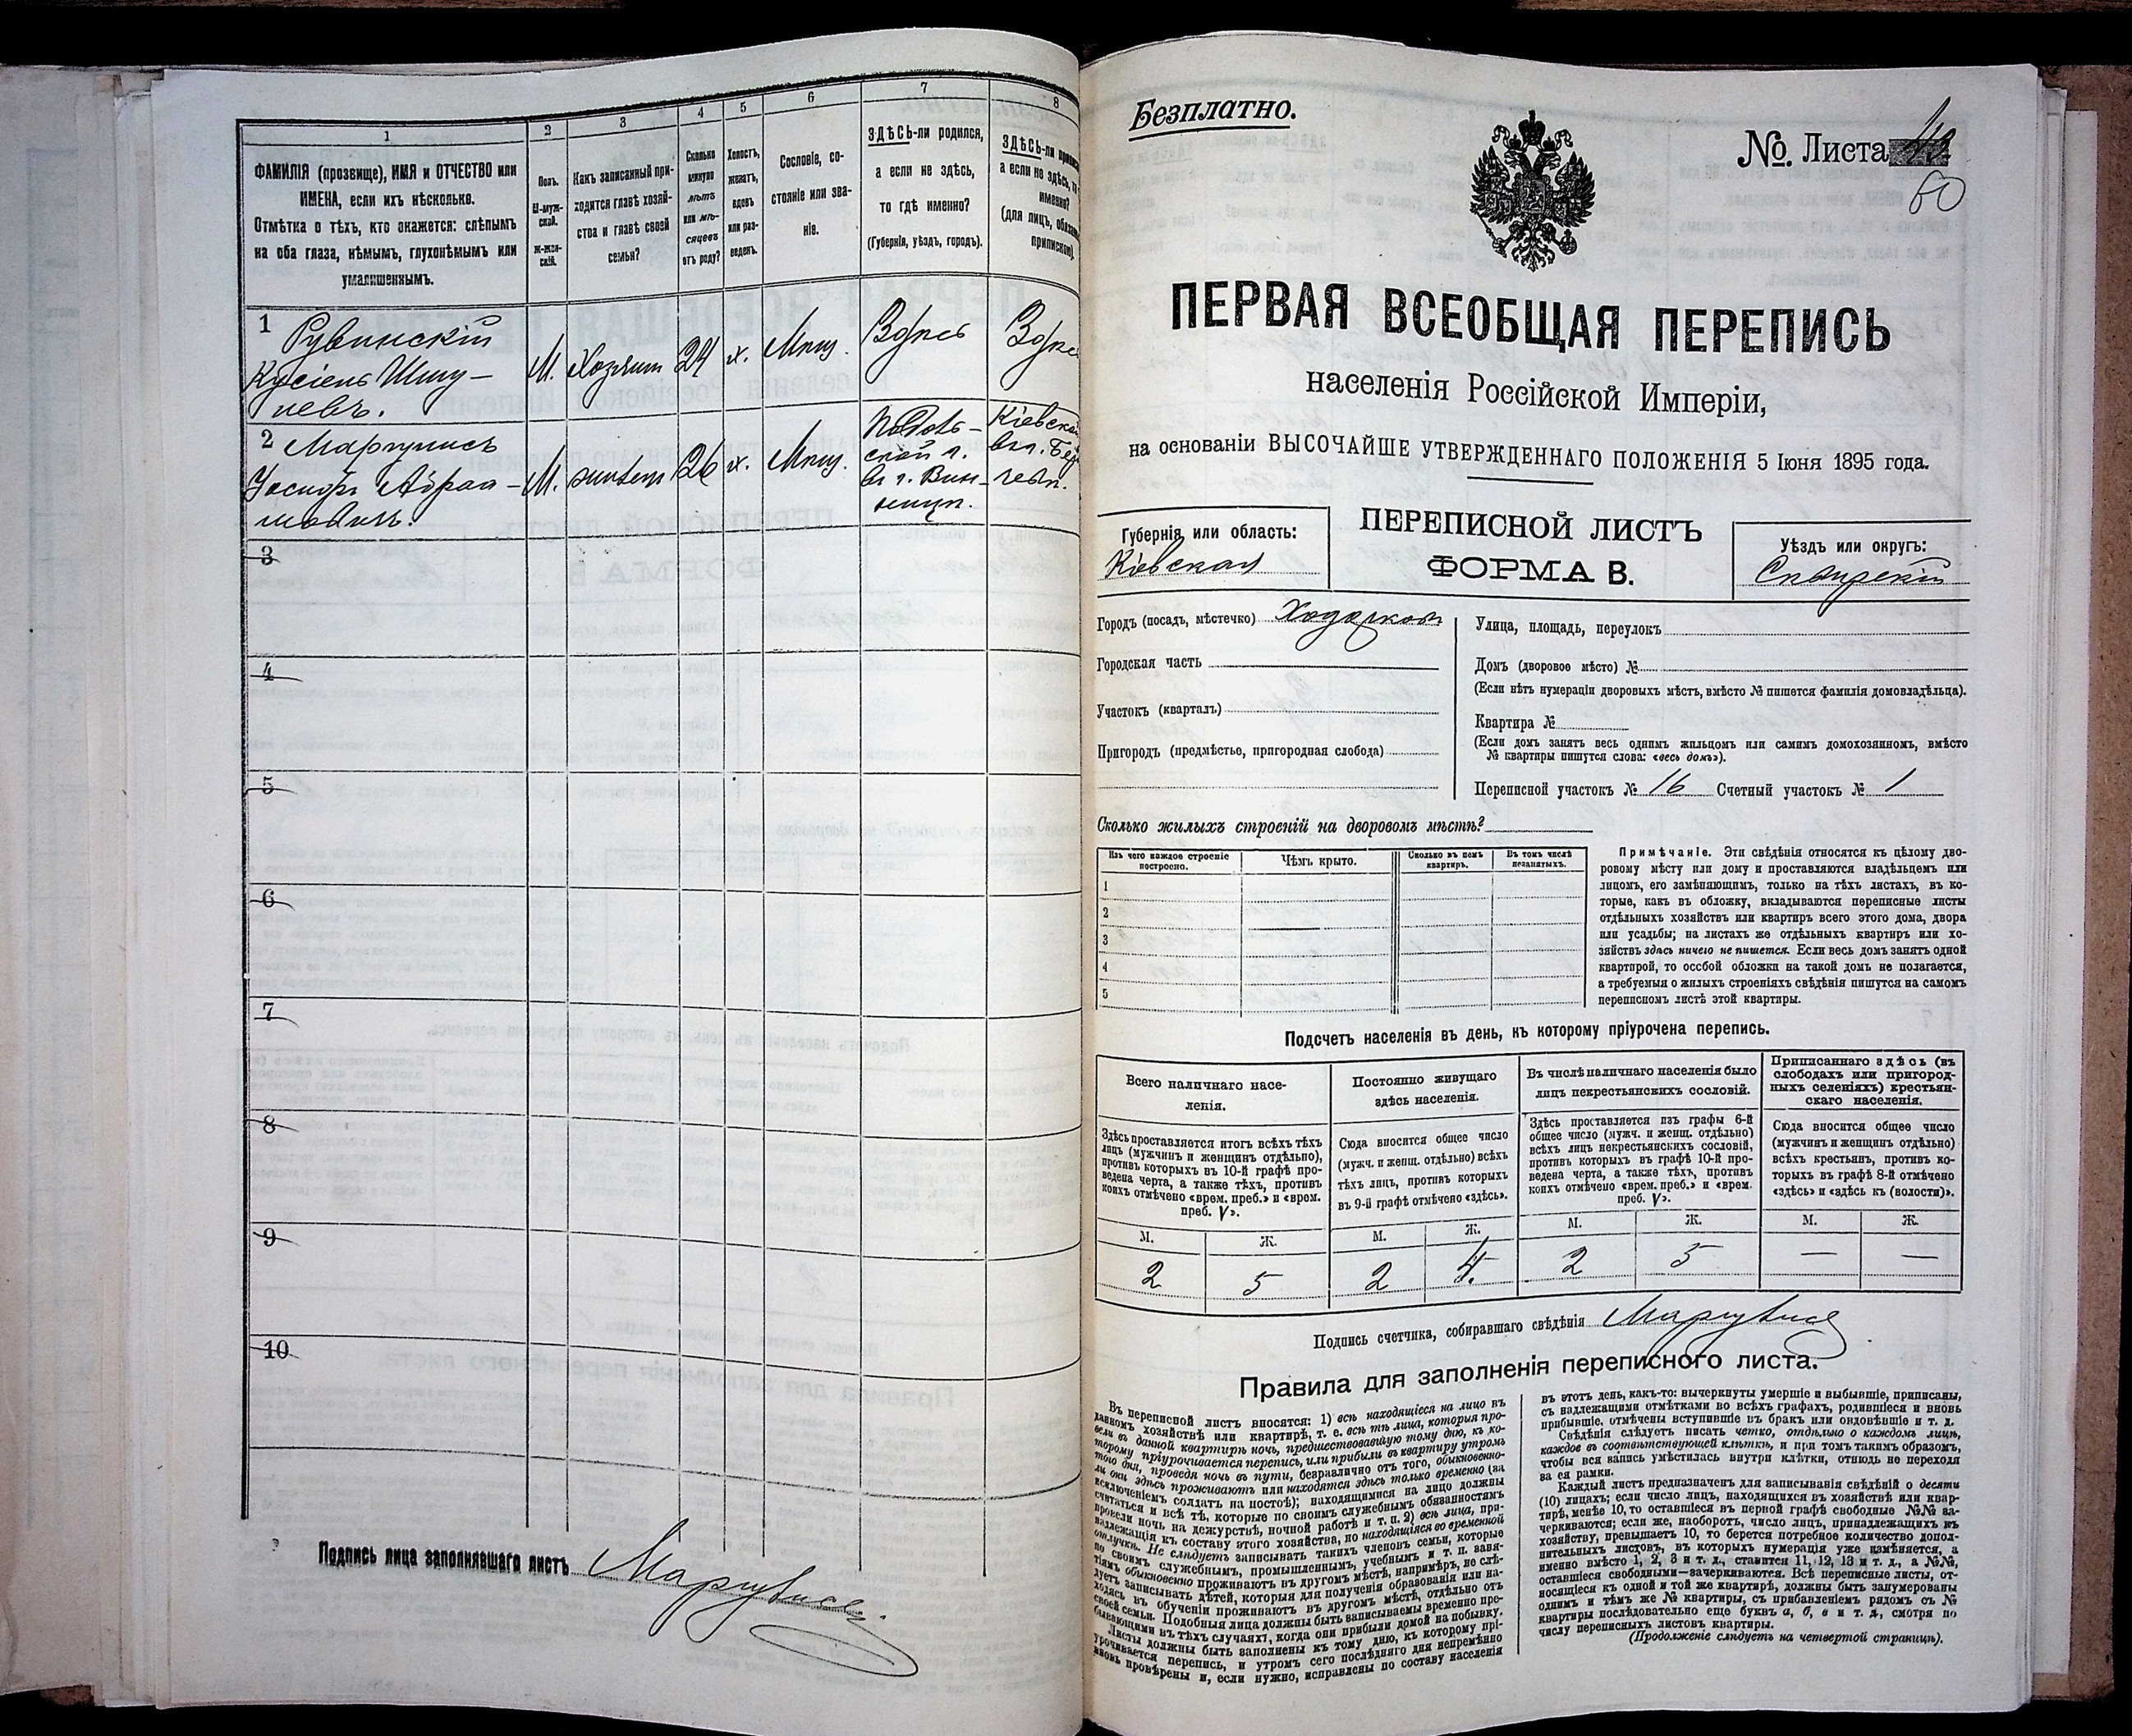 1
2
3
4
5
6
7
8
ФАМИЛІЯ (прозвище), ИМЯ и ОТЧЕСТВО или
ИМЕНА, если ихъ нѣсколько.
Отмѣтка о тѣхъ, кто окажется: слѣпымъ
на оба глаза, нѣмымъ, глухонѣмымъ или
умалишеннымъ.
Полъ.
М-муж-
ской.
Ж-жен-
скій.
Какъ записанный при-
ходится главѣ хозяй-
ства и главѣ своей
семьи?
Сколько
минуло
лѣтъ
или мѣ-
сяцевъ
отъ роду?
Холостъ,
женатъ,
вдовъ
или раз-
веденъ.
Сословіе, со-
стояніе или зва-
ніе.
ЗДѢСЬ-ли родился,
а если не здѣсь,
то гдѣ именно?
(Губернія, уѣздъ, городъ).
ЗДѢСЬ-ли
а если не здѣсь,
именно?
(для лицъ,
припискою)
1 Рувинскій
М. Хозяинъ 24 х. Мѣщ. Здѣсь
2
М. 26 х. Мѣщ. Подоль-
ской г.
въ г. Вин-
ницѣ.
Кіевской
3
4
5
6
7
8
9
10
Подпись лица заполнявшаго листъ
Безплатно.
№. Листа
60
ПЕРВАЯ ВСЕОБЩАЯ ПЕРЕПИСЬ
населенія Россійской Имперіи,
на основаніи ВЫСОЧАЙШЕ УТВЕРЖДЕННАГО ПОЛОЖЕНІЯ 5 Іюня 1895 года.
Губернія или область:
Кіевская
ПЕРЕПИСНОЙ ЛИСТЪ
ФОРМА В.
Уѣздъ или округъ:
Сквирскій
Городъ (посадъ, мѣстечко) Ходорковъ
Городская часть
Участокъ (кварталъ)
Пригородъ (предмѣстье, пригородная слобода)
Улица, площадь, переулокъ
Домъ (дворовое мѣсто) №
(Если нѣтъ нумераціи дворовыхъ мѣстъ, вмѣсто № пишется фамилія домовладѣльца).
Квартира №
(Если домъ занятъ весь однимъ жильцомъ или самимъ домохозяиномъ, вмѣсто
№ квартиры пишутся слова: «весь домъ»).
Переписной участокъ № 16 Счетный участокъ № 1
Сколько жилыхъ строеній на дворовомъ мѣстѣ?
Изъ чего каждое строеніе
построено.
Чѣмъ крыто.
Сколько въ немъ
квартиръ.
Въ томъ числѣ
незанятыхъ.
1
2
3
4
5
Примѣчаніе. Эти свѣдѣнія относятся къ цѣлому дво-
ровому мѣсту или дому и проставляются владѣльцемъ или
лицомъ, его замѣняющимъ, только на тѣхъ листахъ, въ ко-
торые, какъ въ обложку, вкладываются переписные листы
отдѣльныхъ хозяйствъ или квартиръ всего этого дома, двора
или усадьбы; на листахъ же отдѣльныхъ квартиръ или хо-
зяйствъ здѣсь ничего не пишется. Если весь домъ занятъ одной
квартирой, то особой обложки на такой домъ не полагается,
а требуемыя о жилыхъ строеніяхъ свѣдѣнія пишутся на самомъ
переписномъ листѣ этой квартиры.
Подсчетъ населенія въ день, къ которому пріурочена перепись.
Всего наличнаго насе-
ленія.
Постоянно живущаго
здѣсь населенія.
Въ числѣ наличнаго населенія было
лицъ некрестьянскихъ сословій.
Приписаннаго здѣсь (въ
слободахъ или пригород-
ныхъ селеніяхъ) крестьян-
скаго населенія.
Здѣсь проставляется итогъ всѣхъ тѣхъ
лицъ (мужчинъ и женщинъ отдѣльно),
противъ которыхъ въ 10-й графѣ про-
ведена черта, а также тѣхъ, противъ
коихъ отмѣчено «врем. преб.» и «врем.
преб. V».
Сюда вносится общее число
(мужч. и женщ. отдѣльно) всѣхъ
тѣхъ лицъ, противъ которыхъ
въ 9-й графѣ отмѣчено «здѣсь».
Здѣсь проставляется изъ графы 6-й
общее число (мужч. и женщ. отдѣльно)
всѣхъ лицъ некрестьянскихъ сословій,
противъ которыхъ въ графѣ 10-й про-
ведена черта, а также тѣхъ, противъ
коихъ отмѣчено «врем. преб.» и «врем.
преб. V».
Сюда вносится общее число
(мужчинъ и женщинъ отдѣльно)
всѣхъ крестьянъ, противъ ко-
торыхъ въ графѣ 8-й отмѣчено
«здѣсь» и «здѣсь къ (волости)».
М. Ж. М. Ж. М. Ж. М. Ж.
2 5 2 4 2 5 — —
Подпись счетчика, собиравшаго свѣдѣнія
Правила для заполненія переписного листа.
Въ переписной листъ вносятся: 1) всѣ находящіеся на лицо въ
данномъ хозяйствѣ или квартирѣ, т. е. всѣ тѣ лица, которыя про-
вели въ данной квартирѣ ночь, предшествовавшую тому дню, къ ко-
торому пріурочивается перепись, или прибыли въ квартиру утромъ
того дня, проведя ночь въ пути, безразлично отъ того, обыкновенно-
ли они здѣсь проживаютъ или находятся здѣсь только временно (за
исключеніемъ солдатъ на постоѣ); находящимися на лицо должны
считаться и всѣ тѣ, которые по своимъ служебнымъ обязанностямъ
провели ночь на дежурствѣ, ночной работѣ и т. п. 2) всѣ лица, при-
надлежащія къ составу этого хозяйства, но находящіяся во временной
отлучкѣ. Не слѣдуетъ записывать такихъ членовъ семьи, которые
по своимъ служебнымъ, промышленнымъ, учебнымъ и т. п. заня-
тіямъ обыкновенно проживаютъ въ другомъ мѣстѣ, напримѣръ, не слѣ-
дуетъ записывать дѣтей, которыя для полученія образованія или на-
ходясь въ обученіи проживаютъ въ другомъ мѣстѣ, отдѣльно отъ
своей семьи. Подобныя лица должны быть записываемы временно пре-
бывающими въ тѣхъ случаяхъ, когда они прибыли домой на побывку.
Листы должны быть заполнены къ тому дню, къ которому прі-
урочивается перепись, и утромъ сего послѣдняго дня непремѣнно
вновь провѣрены и, если нужно, исправлены по составу населенія
въ этотъ день, какъ-то: вычеркнуты умершіе и выбывшіе, приписаны,
съ надлежащими отмѣтками во всѣхъ графахъ, родившіеся и вновь
прибывшіе, отмѣчены вступившіе въ бракъ или овдовѣвшіе и т. д.
Свѣдѣнія слѣдуетъ писать четко, отдѣльно о каждомъ лицѣ,
каждое въ соотвѣтствующей клѣткѣ, и при томъ такимъ образомъ,
чтобы вся запись умѣстилась внутри клѣтки, отнюдь не переходя
за ея рамки.
Каждый листъ предназначенъ для записыванія свѣдѣній о десяти
(10) лицахъ; если число лицъ, находящихся въ хозяйствѣ или квар-
тирѣ, менѣе 10, то оставшіеся въ первой графѣ свободные №№ за-
черкиваются; если же, наоборотъ, число лицъ, принадлежащихъ къ
хозяйству, превышаетъ 10, то берется потребное количество допол-
нительныхъ листовъ, въ которыхъ нумерація уже измѣняется, а
именно вмѣсто 1, 2, 3 и т. д., ставится 11, 12, 13 и т. д., а №№,
оставшіеся свободными—зачеркиваются. Всѣ переписные листы, от-
носящіеся къ одной и той же квартирѣ, должны быть занумерованы
однимъ и тѣмъ же № квартиры, съ прибавленіемъ рядомъ съ №
квартиры послѣдовательно еще буквъ а, б, в и т. д., смотря по
числу переписныхъ листовъ квартиры.
(Продолженіе слѣдуетъ на четвертой страницѣ).